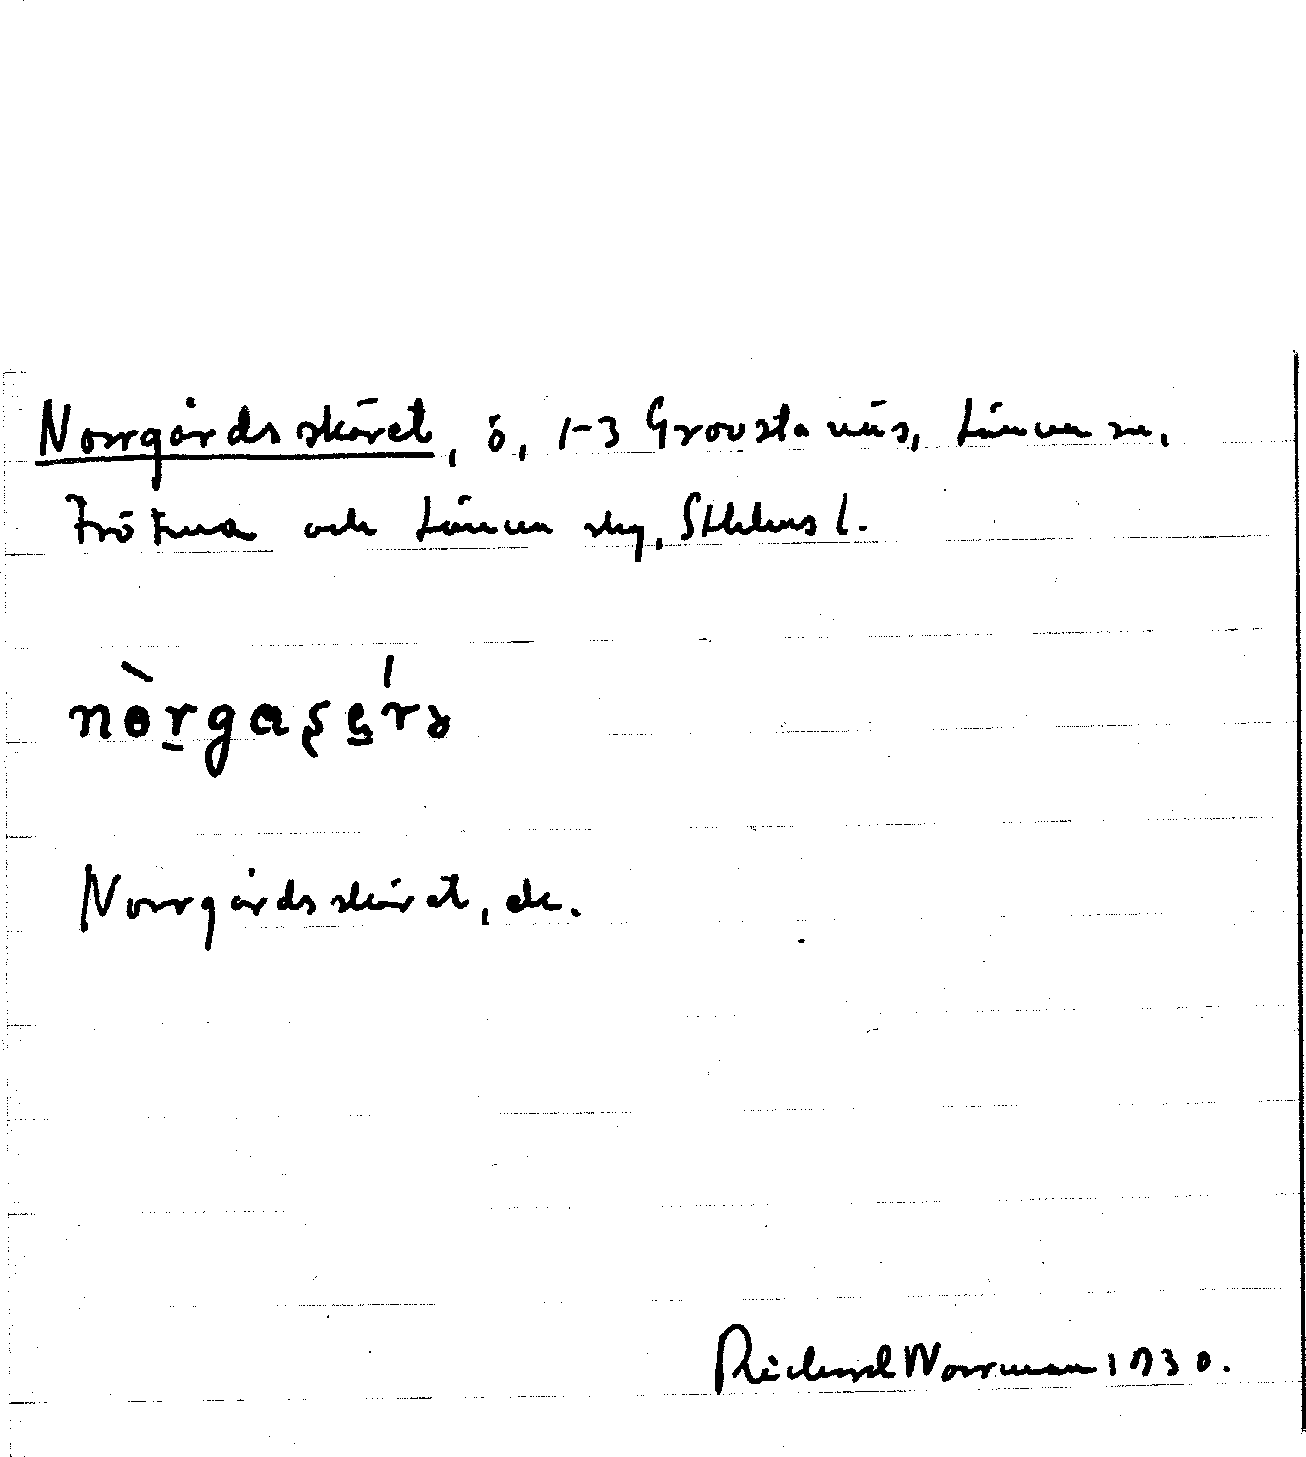 Norrgårdsskäret, ö, 1-3 Grovstanäs, Länna sn,
Frötuna och Länna skg, Sthlms l.
nòrgaʂę́rə
Norrgårdsskäret, ek.
Richard Norrman 1930.